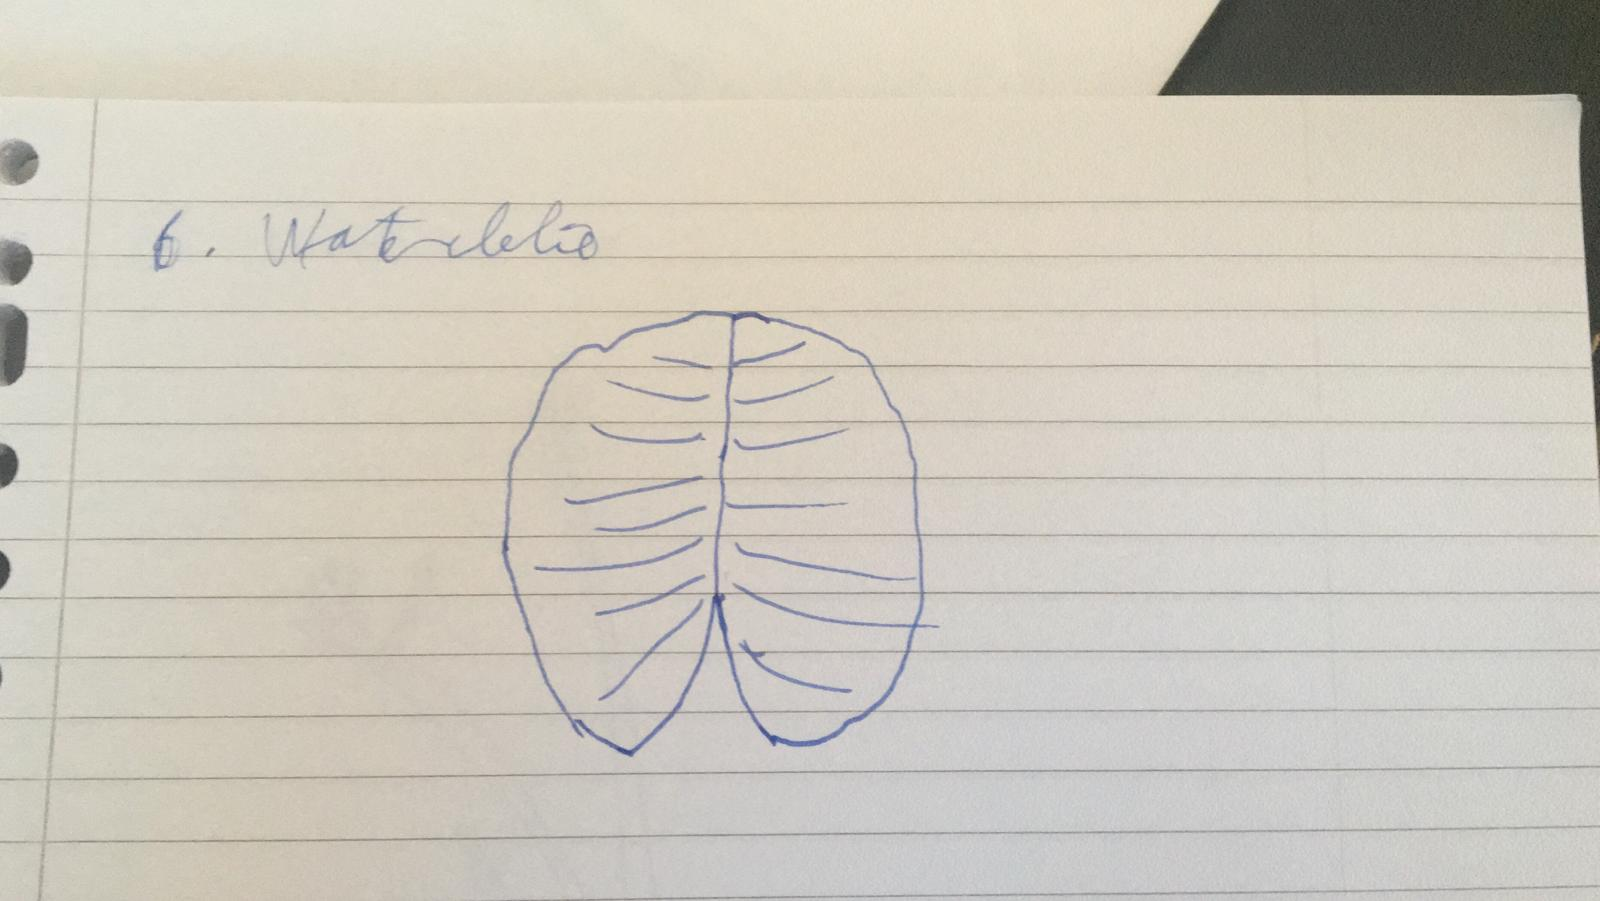 6. Waterlelie